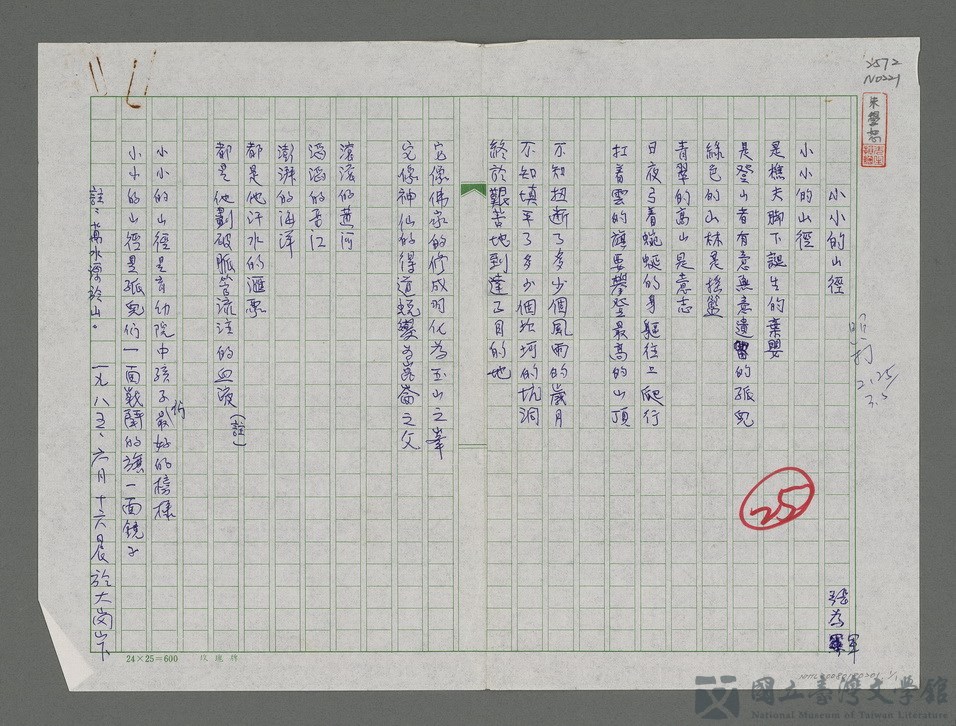 3572
N0221
朱學恕
小小的山徑
張為軍
小小的山徑
是樵夫脚下誕生的棄嬰
是登山者有意無意遺留的孤兒
綠色的山林是搖籃
青翠的高山是意志
日夜弓着蜿蜒的身軀往上爬行
扛着雲的旗要攀登最高的山頂
不知扭断了多少個風雨的歲月
不知填平了多少個坎坷的坑洞
終於艱苦地到達了目的地
它像佛家的修成羽化為玉山之峯
它像神仙的得道蛻變為崑崙之父
滾滾的黃河
滔滔的長江
澎湃的海洋
都是他汗水的滙聚
都是他劃破脈管流注的血液（註）
小小的山徑是育幼院中孩子們最好的榜樣
小小的山徑是孤兒們一面戰鬪的旗一面鏡子
註：萬水源於山。
一九八五、六月十六晨於大崗山下
25
2.25
3.5
24×25=600
國立臺灣文學館
National Museum of Taiwan Literature